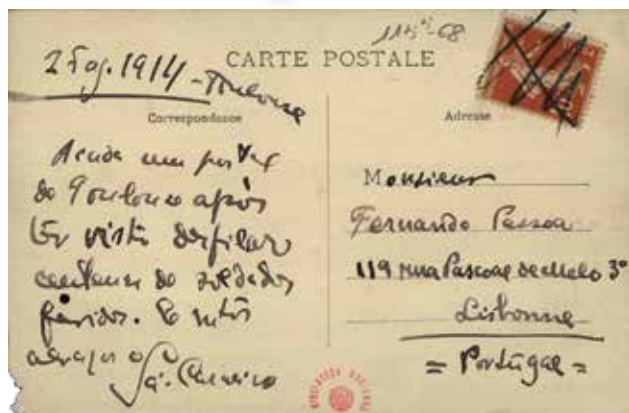 115⁵-68
CARTE POSTALE
2 Ag. 1914 - Toulouse
Correspondance
Ainda um postal
de Toulouse após
ter visto desfilar
centenas de soldados
feridos. E muitos
abraços o
Sá-Carneiro
Adresse
Monsieur
Fernando Pessoa
119 rua Pascoal de Melo 3º
Lisbonne
= Portugal =
BIBLIOTECA NACIONAL